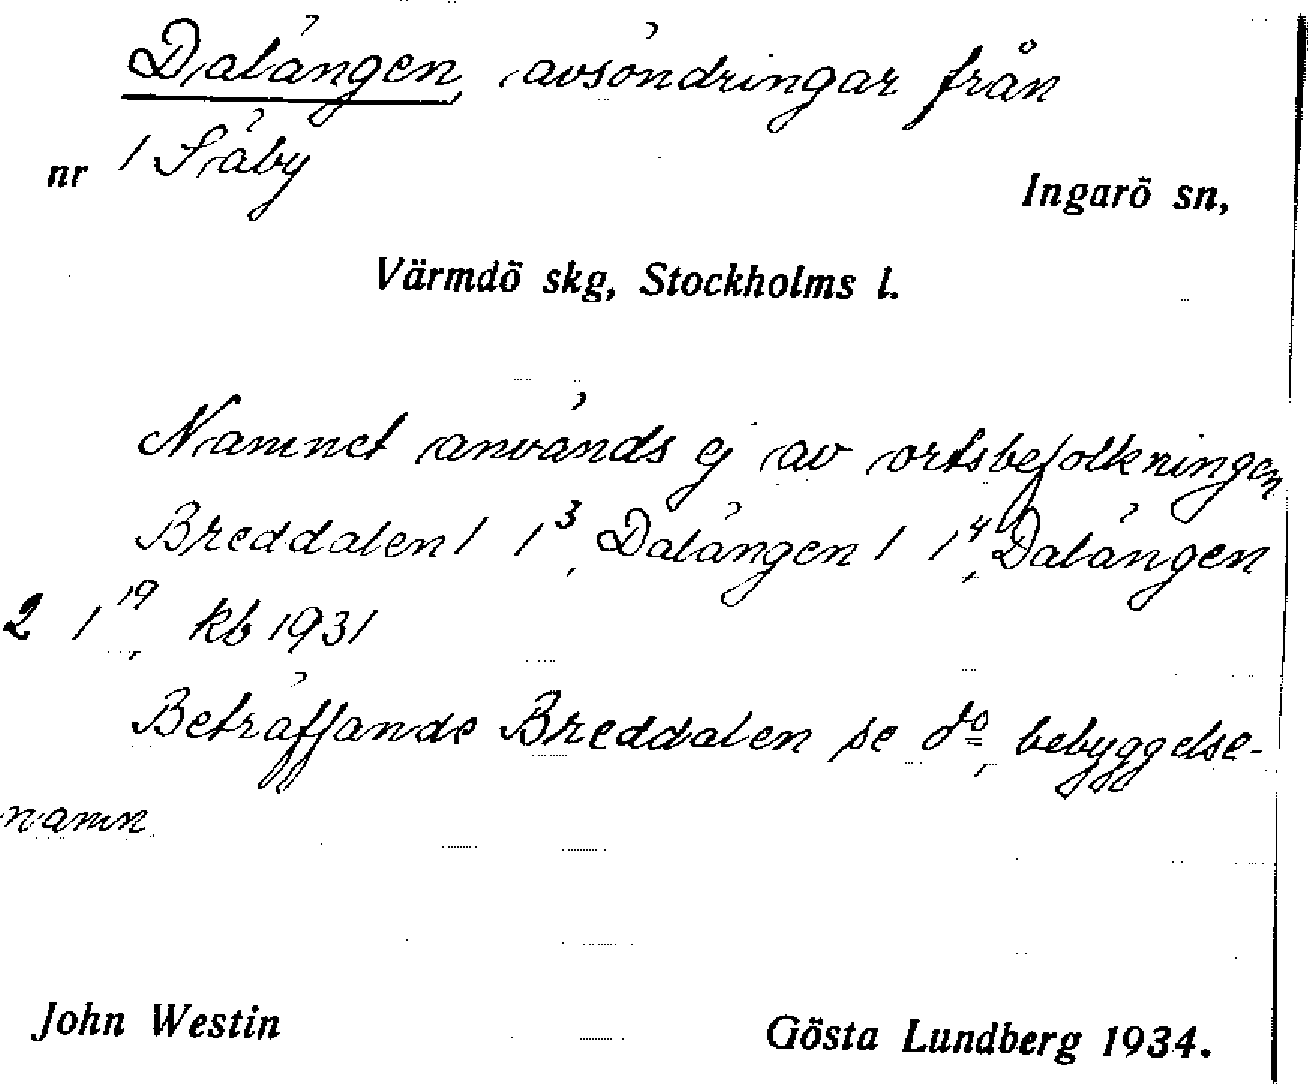 Dalängen, avsöndringar från
nr 1 Säby
Ingarö sn,
Värmdö skg, Stockholms l.
Namnet används ej av ortsbefolkningen
Breddalen 1 1³, Dalängen 1 1⁴, Dalängen
2 1¹⁹, kb 1931
Beträffande Breddalen se do, bebyggelse-
namn
John Westin
Gösta Lundberg 1934.